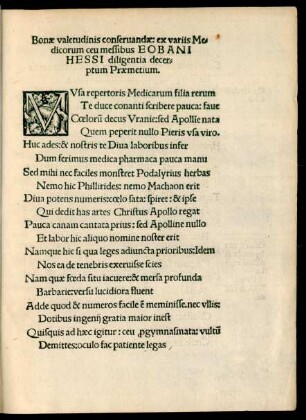 Bonæ valetudinis conseruandæ: ex variis Me-
dicorum ceu messibus EOBANI
HESSI diligentia decer-
ptum Præmetium.
MVsa repertoris Medicarum filia rerum
Te duce conanti scribere pauca: faue
Cœlorũ decus Vranie: sed Apolline nata
Quem peperit nullo Pieris vsa viro.
Huc ades: & nostris te Diua laboribus infer
Dum ferimus medica pharmaca pauca manu
Sed mihi nec faciles monstret Podalyrius herbas
Nemo hic Phillirides: nemo Machaon erit
Diua potens numeris: cœlo sata: spiret: & ipse
Qui dedit has artes Christus Apollo regat
Pauca canam cantata prius: sed Apolline nullo
Et labor hic aliquo nomine noster erit
Namque hic si qua leges adiuncta prioribus: Idem
Nos ea de tenebris exeruisse scies
Nam quæ fœda situ iacuere: & mersa profunda
Barbarie: versu lucidiora fluent
Adde quod & numeros facile ẽ meminisse. nec vllis:
Dotibus ingenij gratia maior inest
Quisquis ad hæc igitur: ceu ꝓgymnasmata: vultũ
Demittes: oculo fac patiente legas